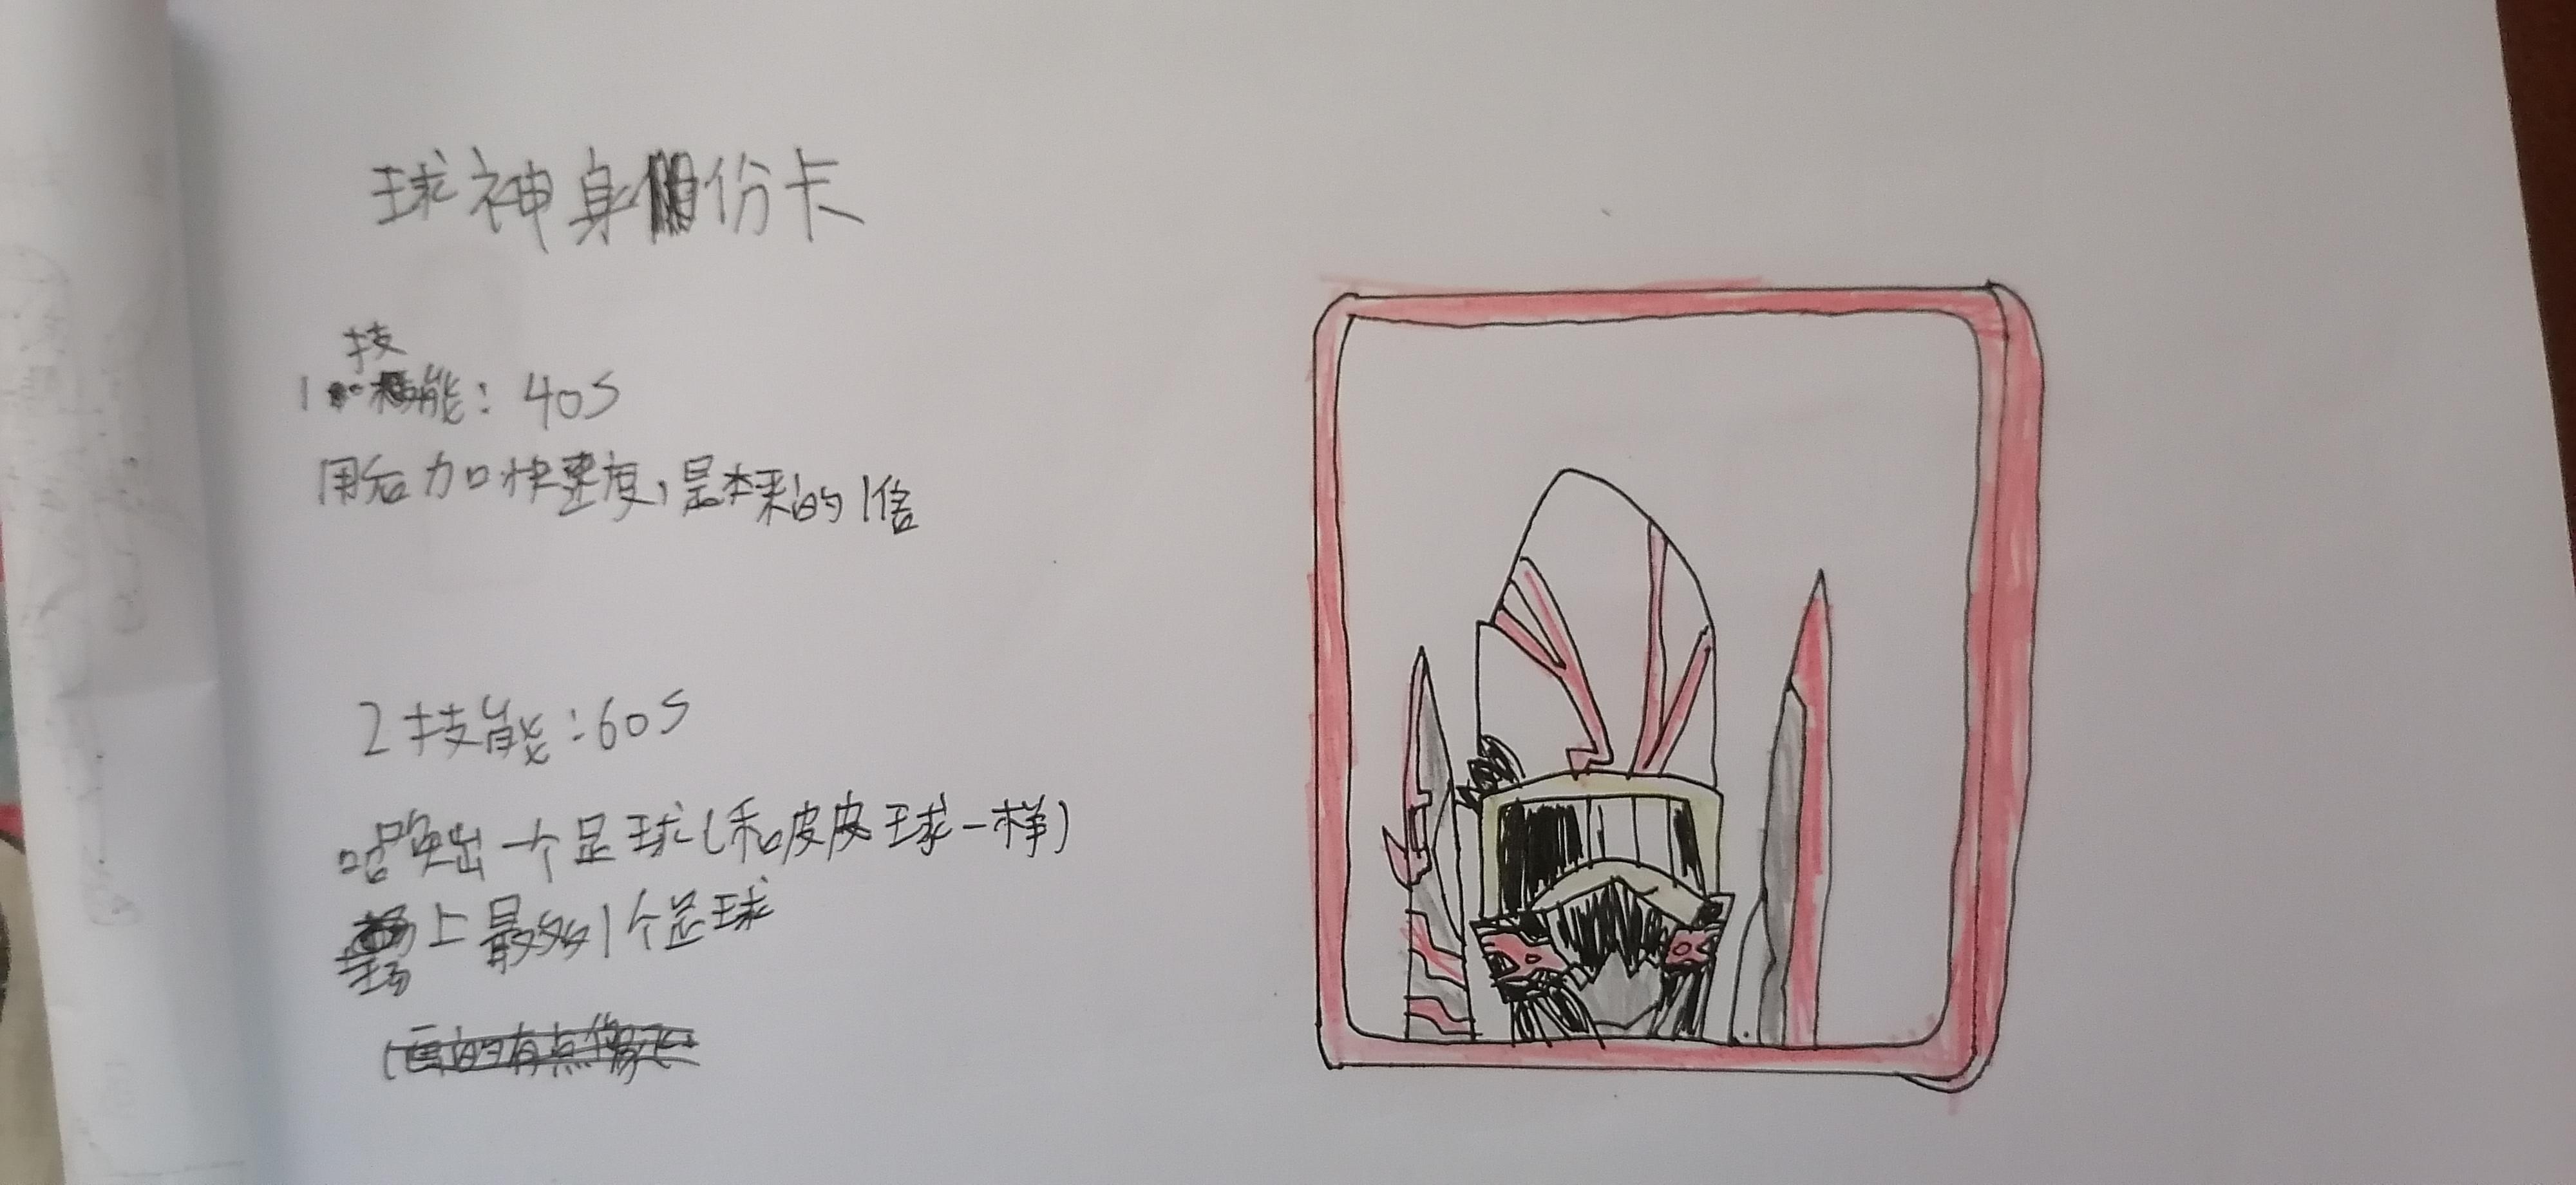 球神身份卡
1技能：40S
用后加快速度，是本来的1倍
2技能：60S
召唤出一个足球（和皮皮球一样）
场上最多1个足球